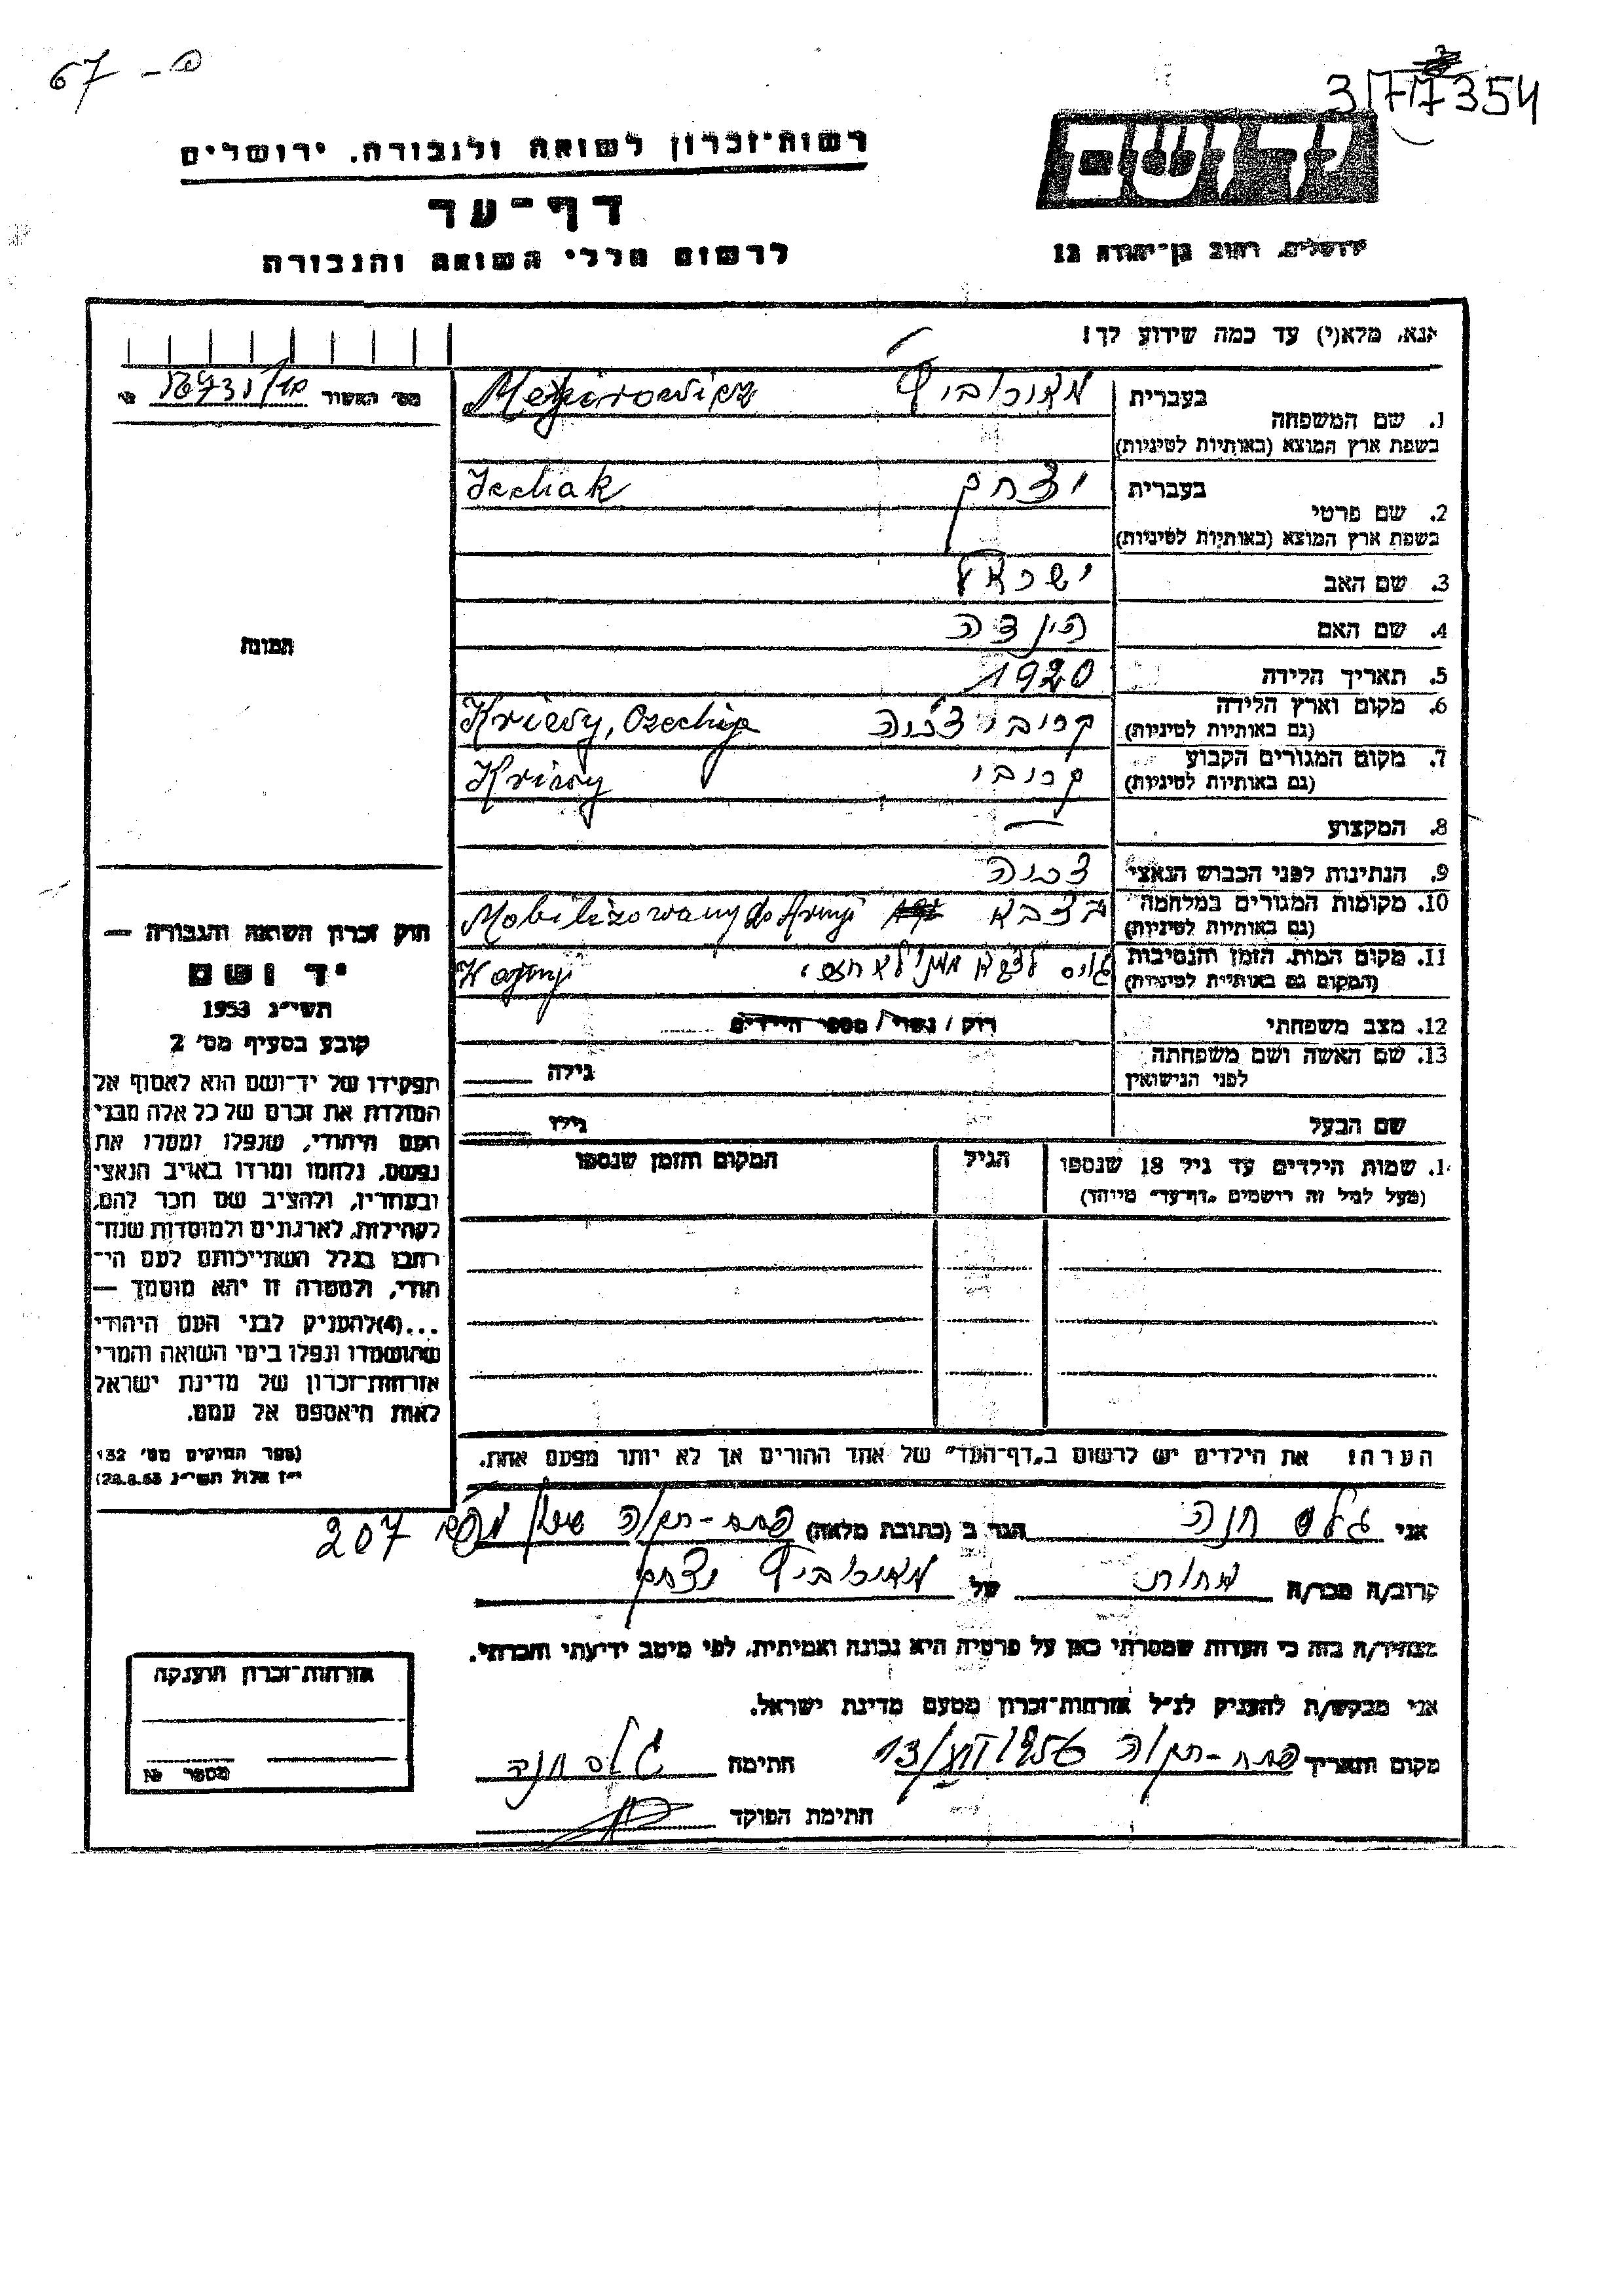 67 - פ
3177354
רשות־זכרון לשואה ולגבורה. ירושלים
יד ושם
דף־עד
לרשום חללי השואה והגבורה
ירושלים, רחוב בן־יהודה 12
אנא, מלא(י) עד כמה שידוע לך!
מס׳ האשור
1. שם המשפחה בעברית מאירוביץ
בשפת ארץ המוצא (באותיות לטיניות)
2. שם פרטי בעברית יצחק Icchak
בשפת ארץ המוצא (באותיות לטיניות)
3. שם האב ישראל
4. שם האם
5. תאריך הלידה 1920
6. מקום וארץ הלידה
(גם באותיות לטיניות)
7. מקום המגורים הקבוע קריבי
(גם באותיות לטיניות)
8. המקצוע —
9. הנתינות לפני הכבוש הנאצי צכיה
10. מקומות המגורים במלחמה בצבא Mobilizowany do Armji
(גם באותיות לטיניות)
11. מקום המות, הזמן והנסיבות גויס לצבא ממנו לא חזר.
(המקום גם באותיות לטיניות)
12. מצב משפחתי רוק / נשוי / מספר הילדים
13. שם האשה ושם משפחתה גילה
לפני הנישואין
שם הבעל גילו
תמונה
חוק זכרון השואה והגבורה —
יד ושם
תשי״ג 1953
קובע בסעיף מס׳ 2
תפקידו של יד־ושם הוא לאסוף אל
המולדת את זכרם של כל אלה מבני
העם היהודי, שנפלו ומסרו את
נפשם, נלחמו ומרדו באויב הנאצי
ובעוזריו, ולהציב שם וזכר להם,
לקהילות, לארגונים ולמוסדות שנח־
רחבו בגלל השתייכותם לעם הי־
הודי, ולמטרה זו יהא מוסמך —
...(4)להעניק לבני העם היהודי
שהושמדו ונפלו בימי השואה והמרי
אזרחות־זכרון של מדינת ישראל
לאות היאספם אל עמם.
(ספר החוקים מס׳ 132
י״ז אלול תשי״ג 28.8.53)
14. שמות הילדים עד גיל 18 שנספו הגיל המקום והזמן שנספו
(מעל לגיל זה רושמים „דף־עד״ מיוחד)
הערה! את הילדים יש לרשום ב„דף־העד״ של אחד ההורים אך לא יותר מפעם אחת.
אני גלס חנה הגר ב (כתובת מלאה) פתח-תקוה 207
קרוב/ה מכר/ה אחות של מאירוביץ יצחק
מצהיר/ה בזה כי העדות שמסרתי כאן על פרטיה היא נכונה ואמיתית, לפי מיטב ידיעתי והכרתי.
אני מבקש/ת להעניק לנ״ל אזרחות־זכרון מטעם מדינת ישראל.
מקום ותאריך פתח-תקוה חתימה גלס חנה
חתימת הפוקד
אזרחות־זכרון הוענקה
מספר №